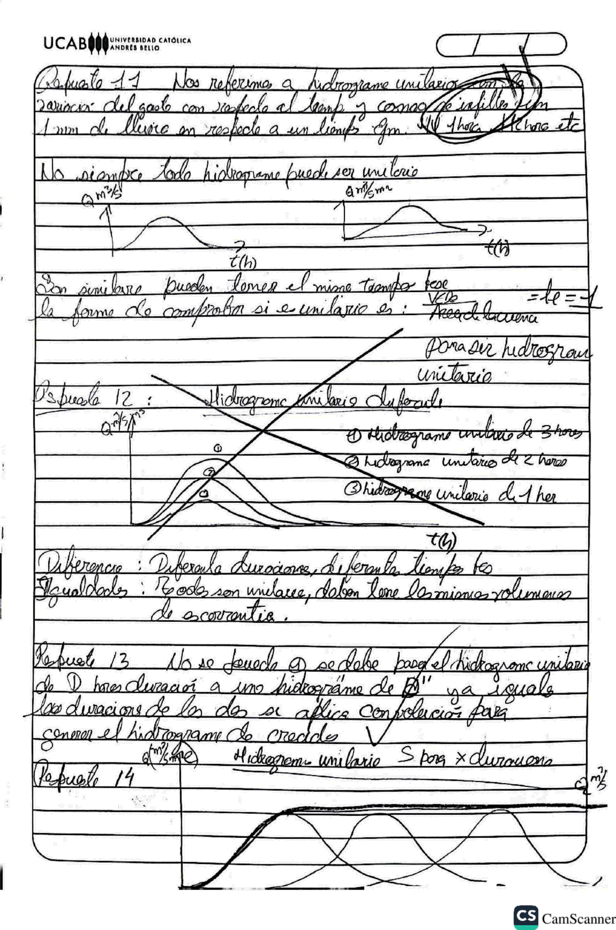 UCAB UNIVERSIDAD CATÓLICA
ANDRÉS BELLO
Respuesta 11 Nos referimos a hidrograma unitario con la
variacion del gasto con respecto al tiemp y como se infiltra
1 mm de lluvia en respecto a un tiempo 1hora hora etc
No siempre todo hidrograma puede ser unitario
Q m³/s
Q m³/s mm
t(h)
t(h)
Son similare pueden tener el mismo tiempo base
la forma de comprobar si es unitario es : Vedo = le = 1
Area de la cuenca
para ser hidrogram
unitario
Respuesta 12 : Hidrograma Unitario
Q m³/s
① Hidrograma unitario de 3 horas
② hidrograma unitario de 2 horas
③ hidrograma unitario de 1 hor
①
②
③
t(h)
Diferencia : Diferente duraciones, diferente tiempo
Igualdades : Todos son unitario, deben tene los mismos volumenes
de escorrentia.
Respuesta 13 No se puede se debe pasar el hidrograma unitario
de D horas duración a uno hidrograma de D" ya iguale
las duracione de los dos se aplica Convolución para
generar el hidrograma de crecidas
Respuesta 14 Hidrograma unitario S para x duracion
Q m³/s
CS CamScanner